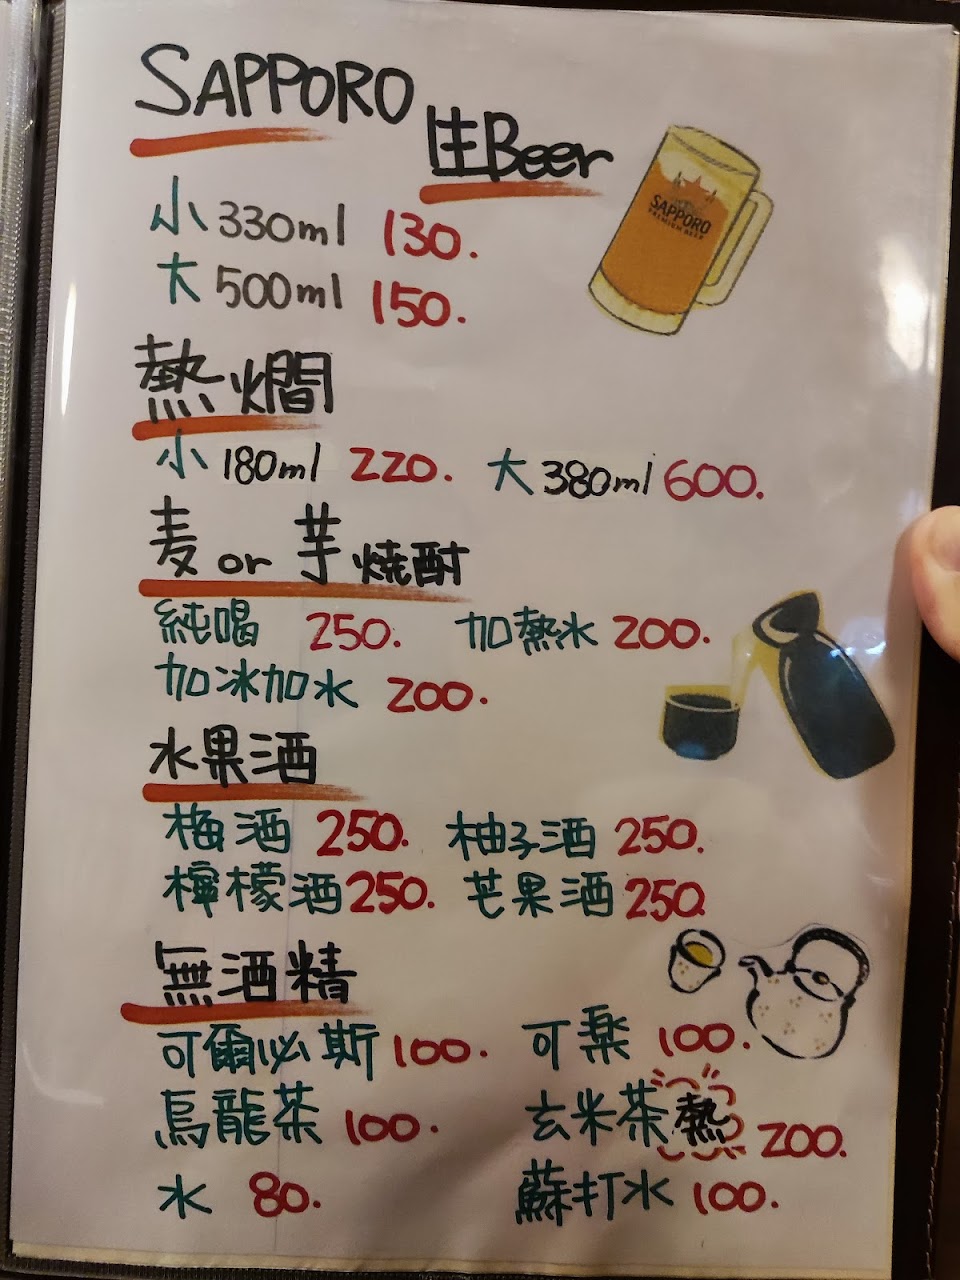 SAPPORO
生Beer
SAPPORO
PREMIUM BEER
小 330ml 130.
大 500ml 150.
熱燗
小 180ml 220. 大 380ml 600.
麦 or 芋 焼酎
純喝 250. 加熱水 200.
加冰加水 200.
水果酒
梅酒 250. 柚子酒 250.
檸檬酒 250. 芒果酒 250.
無酒精
可爾必斯 100. 可樂 100.
烏龍茶 100. 玄米茶 熱 200.
水 80. 蘇打水 100.